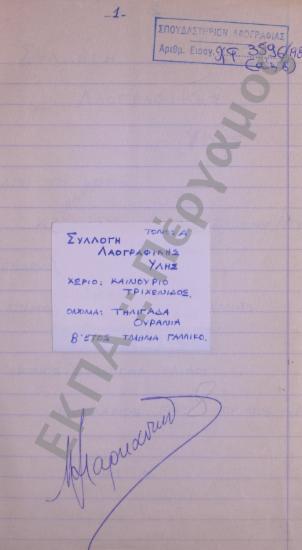 -1-
ΣΠΟΥΔΑΣΤΗΡΙΟΝ ΛΑΟΓΡΑΦΙΑΣ
Αριθμ. Εισαγ. χφ 3596/98
(α+β)
ΤΟΜΟΣ Α
ΣΥΛΛΟΓΗ
ΛΑΟΓΡΑΦΙΚΗΣ
ΥΛΗΣ
ΧΩΡΙΟ: ΚΑΙΝΟΥΡΙΟ
ΤΡΙΧΩΝΙΔΟΣ.
ΟΝΟΜΑ: ΤΗΛΙΓΑΔΑ
ΟΥΡΑΝΙΑ
Β' ΕΤΟΣ ΤΜΗΜΑ ΓΑΛΛΙΚΟ.
8
ΕΚΠΑ :: Πέργαμος